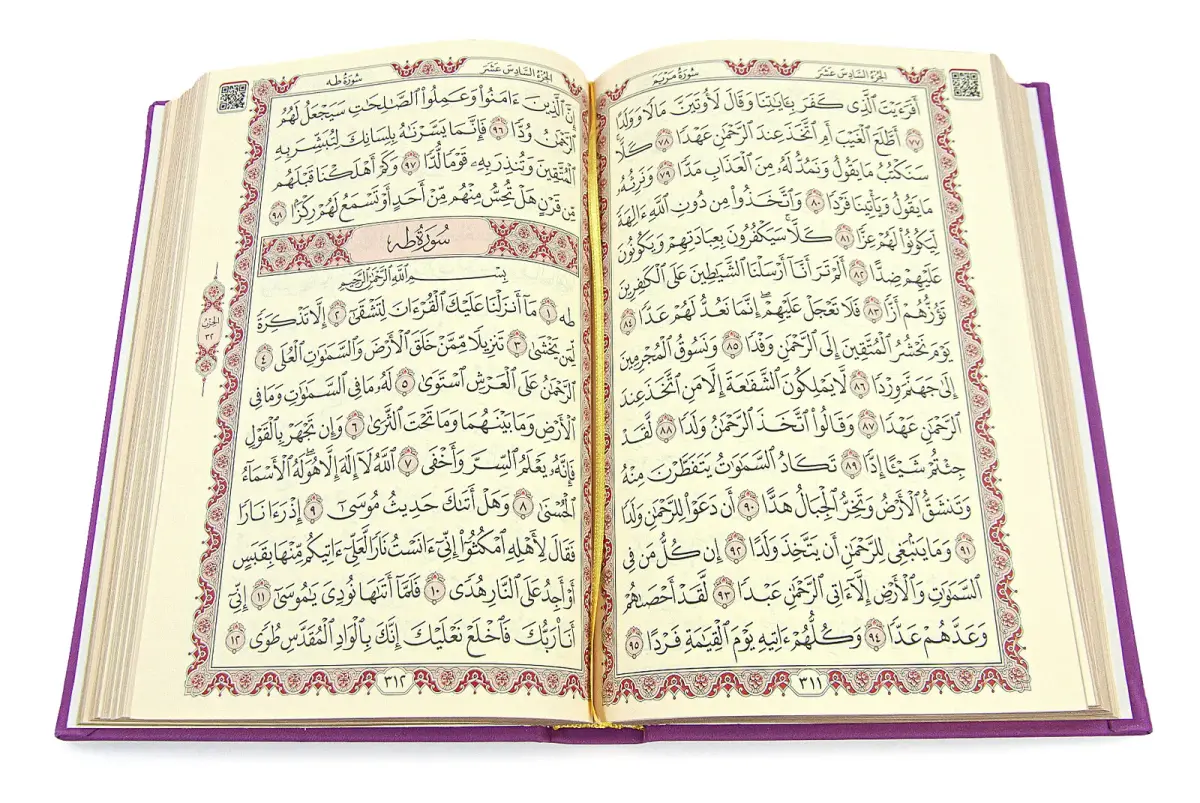 الجزء السادس عشر
سورة مريم
أَفَرَءَيْتَ ٱلَّذِى كَفَرَ بِـَٔايَٰتِنَا وَقَالَ لَأُوتَيَنَّ مَالًا وَوَلَدًا
٧٧ أَطَّلَعَ ٱلْغَيْبَ أَمِ ٱتَّخَذَ عِندَ ٱلرَّحْمَٰنِ عَهْدًا ٧٨ كَلَّا
سَنَكْتُبُ مَا يَقُولُ وَنَمُدُّ لَهُۥ مِنَ ٱلْعَذَابِ مَدًّا ٧٩ وَنَرِثُهُۥ
مَا يَقُولُ وَيَأْتِينَا فَرْدًا ٨٠ وَٱتَّخَذُوا۟ مِن دُونِ ٱللَّهِ ءَالِهَةً
لِّيَكُونُوا۟ لَهُمْ عِزًّا ٨١ كَلَّا سَيَكْفُرُونَ بِعِبَادَتِهِمْ وَيَكُونُونَ
عَلَيْهِمْ ضِدًّا ٨٢ أَلَمْ تَرَ أَنَّآ أَرْسَلْنَا ٱلشَّيَٰطِينَ عَلَى ٱلْكَٰفِرِينَ
تَؤُزُّهُمْ أَزًّا ٨٣ فَلَا تَعْجَلْ عَلَيْهِمْ إِنَّمَا نَعُدُّ لَهُمْ عَدًّا ٨٤
يَوْمَ نَحْشُرُ ٱلْمُتَّقِينَ إِلَى ٱلرَّحْمَٰنِ وَفْدًا ٨٥ وَنَسُوقُ ٱلْمُجْرِمِينَ
إِلَىٰ جَهَنَّمَ وِرْدًا ٨٦ لَّا يَمْلِكُونَ ٱلشَّفَٰعَةَ إِلَّا مَنِ ٱتَّخَذَ عِندَ
ٱلرَّحْمَٰنِ عَهْدًا ٨٧ وَقَالُوا۟ ٱتَّخَذَ ٱلرَّحْمَٰنُ وَلَدًا ٨٨ لَّقَدْ
جِئْتُمْ شَيْـًٔا إِدًّا ٨٩ تَكَادُ ٱلسَّمَٰوَٰتُ يَتَفَطَّرْنَ مِنْهُ
وَتَنشَقُّ ٱلْأَرْضُ وَتَخِرُّ ٱلْجِبَالُ هَدًّا ٩٠ أَن دَعَوْا۟ لِلرَّحْمَٰنِ وَلَدًا
٩١ وَمَا يَنۢبَغِى لِلرَّحْمَٰنِ أَن يَتَّخِذَ وَلَدًا ٩٢ إِن كُلُّ مَن فِى
ٱلسَّمَٰوَٰتِ وَٱلْأَرْضِ إِلَّآ ءَاتِى ٱلرَّحْمَٰنِ عَبْدًا ٩٣ لَّقَدْ أَحْصَىٰهُمْ
وَعَدَّهُمْ عَدًّا ٩٤ وَكُلُّهُمْ ءَاتِيهِ يَوْمَ ٱلْقِيَٰمَةِ فَرْدًا ٩٥
٣١١
الجزء السادس عشر
سورة طه
إِنَّ ٱلَّذِينَ ءَامَنُوا۟ وَعَمِلُوا۟ ٱلصَّٰلِحَٰتِ سَيَجْعَلُ لَهُمُ
ٱلرَّحْمَٰنُ وُدًّا ٩٦ فَإِنَّمَا يَسَّرْنَٰهُ بِلِسَانِكَ لِتُبَشِّرَ بِهِ
ٱلْمُتَّقِينَ وَتُنذِرَ بِهِۦ قَوْمًا لُّدًّا ٩٧ وَكَمْ أَهْلَكْنَا قَبْلَهُم
مِّن قَرْنٍ هَلْ تُحِسُّ مِنْهُم مِّنْ أَحَدٍ أَوْ تَسْمَعُ لَهُمْ رِكْزًۢا ٩٨
سورة طه
بِسْمِ ٱللَّهِ ٱلرَّحْمَٰنِ ٱلرَّحِيمِ
طه ١ مَآ أَنزَلْنَا عَلَيْكَ ٱلْقُرْءَانَ لِتَشْقَىٰٓ ٢ إِلَّا تَذْكِرَةً
لِّمَن يَخْشَىٰ ٣ تَنزِيلًا مِّمَّنْ خَلَقَ ٱلْأَرْضَ وَٱلسَّمَٰوَٰتِ ٱلْعُلَى ٤
ٱلرَّحْمَٰنُ عَلَى ٱلْعَرْشِ ٱسْتَوَىٰ ٥ لَهُۥ مَا فِى ٱلسَّمَٰوَٰتِ وَمَا فِى
ٱلْأَرْضِ وَمَا بَيْنَهُمَا وَمَا تَحْتَ ٱلثَّرَىٰ ٦ وَإِن تَجْهَرْ بِٱلْقَوْلِ
فَإِنَّهُۥ يَعْلَمُ ٱلسِّرَّ وَأَخْفَى ٧ ٱللَّهُ لَآ إِلَٰهَ إِلَّا هُوَ لَهُ ٱلْأَسْمَآءُ
ٱلْحُسْنَىٰ ٨ وَهَلْ أَتَىٰكَ حَدِيثُ مُوسَىٰٓ ٩ إِذْ رَءَا نَارًا
فَقَالَ لِأَهْلِهِ ٱمْكُثُوٓا۟ إِنِّىٓ ءَانَسْتُ نَارًا لَّعَلِّىٓ ءَاتِيكُم مِّنْهَا بِقَبَسٍ
أَوْ أَجِدُ عَلَى ٱلنَّارِ هُدًى ١٠ فَلَمَّآ أَتَىٰهَا نُودِىَ يَٰمُوسَىٰٓ ١١ إِنِّىٓ
أَنَا۠ رَبُّكَ فَٱخْلَعْ نَعْلَيْكَ إِنَّكَ بِٱلْوَادِ ٱلْمُقَدَّسِ طُوًى ١٢
الحزب
٣٢
٣١٢